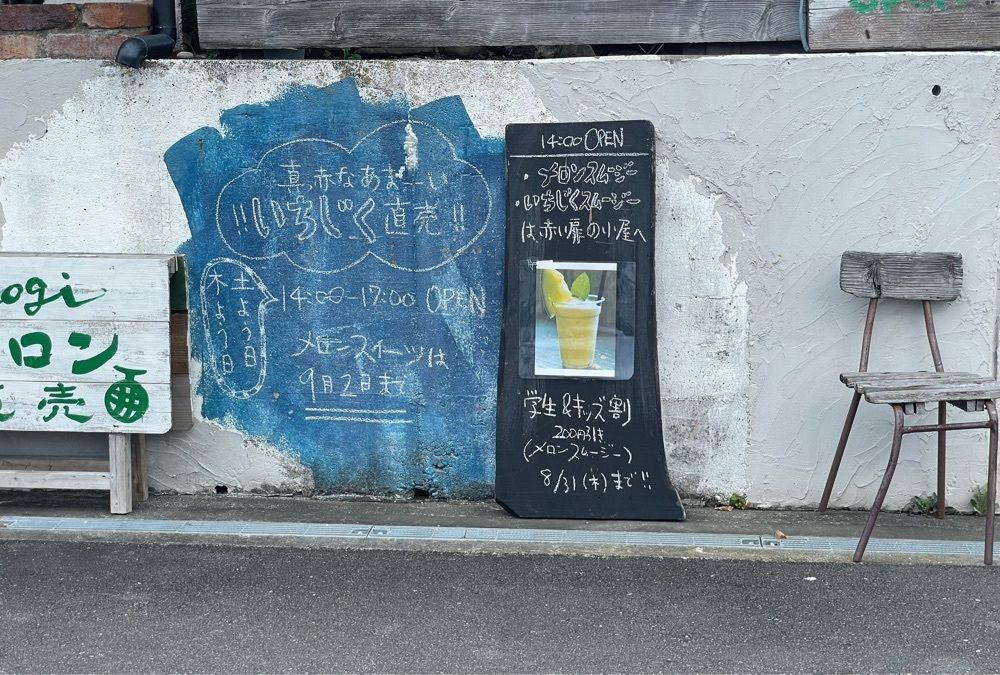 ogi
ロン
売
真赤なあまーい
!!いちじく直売!!
土よう日
木よう日
14:00-17:00 OPEN
メロンスイーツは
9月2日まで
14:00 OPEN
・メロンスムージー
・いちじくスムージー
は、赤い扉の小屋へ
学生&キッズ割
200円引き
(メロンスムージー)
8/31(木)まで!!